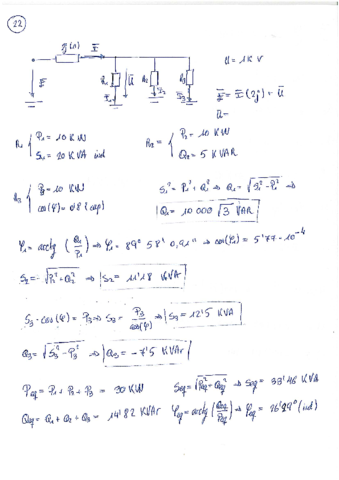 22
2j(Ω) I
U = 1K V
R1 R2 R3 U
E I1 I2 I3
E = I(2j) + U
R1 { P1 = 10 KW
S1 = 20 KVA ind
R2 = { P2 = 10 KW
Q2 = 5 KVAR
R3 { P3 = 10 KW
cos(φ) = 0'8 (cap)
S1² = P1² + Q² ⇒ Q1 = √S1² - P1² ⇒
Q1 = 10 000 √3 VAR
φ1 = arctg (Q1/P1) ⇒ φ1 = 89° 58' 0,91" ⇒ cos(φ1) = 5'77·10⁻⁴
S2 = √P2² + Q2² ⇒ S2 = 11'18 KVA
S3 · cos(φ) = P3 ⇒ S3 = P3/cos(φ) ⇒ S3 = 12'5 KVA
Q3 = √S3² - P3² ⇒ Q3 = -7'5 KVAr
Peq = P1 + P2 + P3 = 30 KW Seq = √Peq² + Qeq² ⇒ Seq = 33'46 KVA
Qeq = Q1 + Q2 + Q3 = 14'82 KVAR φeq = arctg (Qeq/Peq) ⇒ φeq = 26'29° (ind)